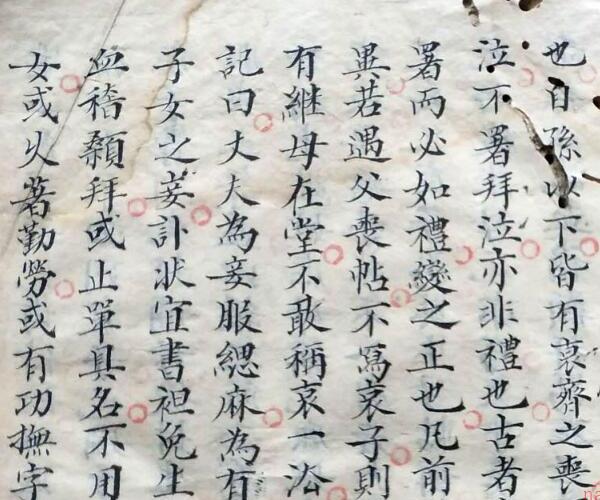 也自孫以下皆有衰齊之喪
泣不署拜泣亦非禮也古者
署而必如禮變之正也凡前
異若遇父喪帖不寫哀子則
有継母在堂不敢稱哀一
記曰大夫為妾服緦麻為有
子女之妾訃状宜書袒免生
血稽顙拜或止單具名不用
女或乆著勤勞或有功撫字